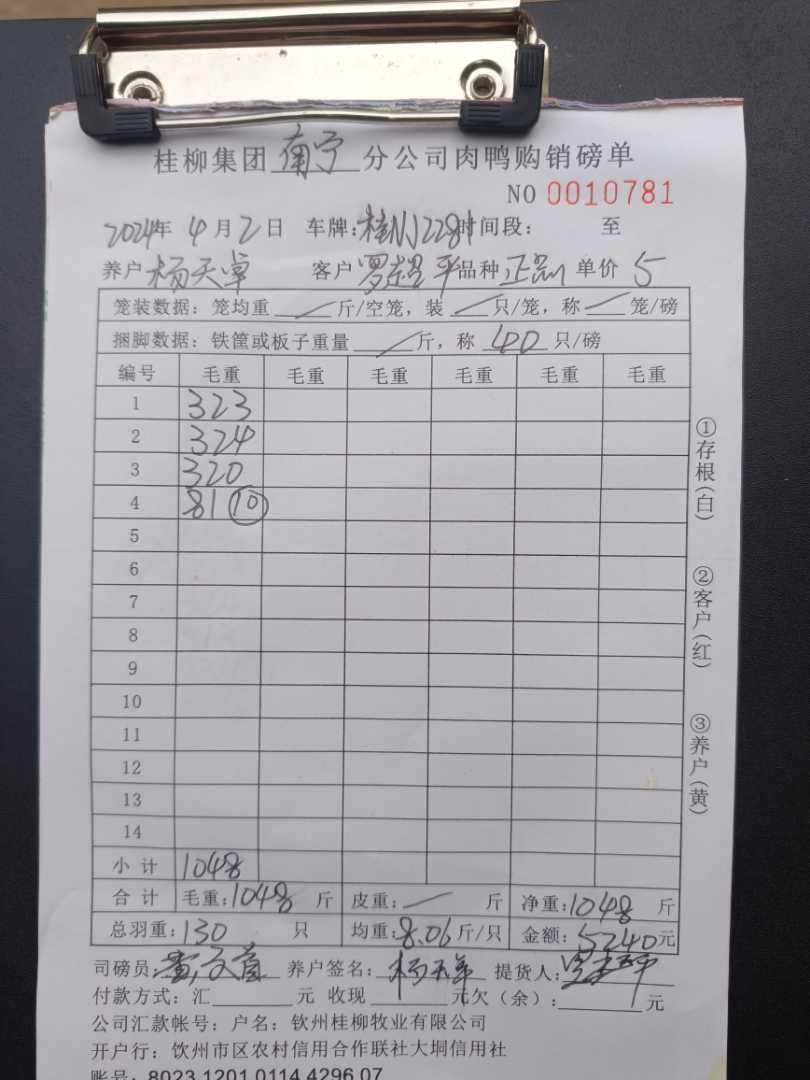 桂柳集团南宁分公司肉鸭购销磅单
NO 0010781
2024年 4月2日 车牌:桂NJ2281 时间段: 至
养户 杨天卓 客户 罗超平 品种 正品 单价 5
笼装数据: 笼均重 / 斤/空笼, 装 / 只/笼, 称 / 笼/磅
捆脚数据: 铁筐或板子重量 / 斤, 称 40 只/磅
编号 毛重 毛重 毛重 毛重 毛重 毛重
1 323
2 324
3 320
4 81 ⑩
5
6
7
8
9
10
11
12
13
14
小计 1048
合计 毛重:1048 斤 皮重: / 斤 净重:1048 斤
总羽重:130 只 均重:8.06斤/只 金额:5240元
司磅员: 养户签名: 提货人:
付款方式: 汇 元 收现 元欠(余): 元
公司汇款帐号: 户名: 钦州桂柳牧业有限公司
开户行: 饮州市区农村信用合作联社大垌信用社
账号: 8023 1201 0114 4296 07
①存根(白)
②客户(红)
③养户(黄)